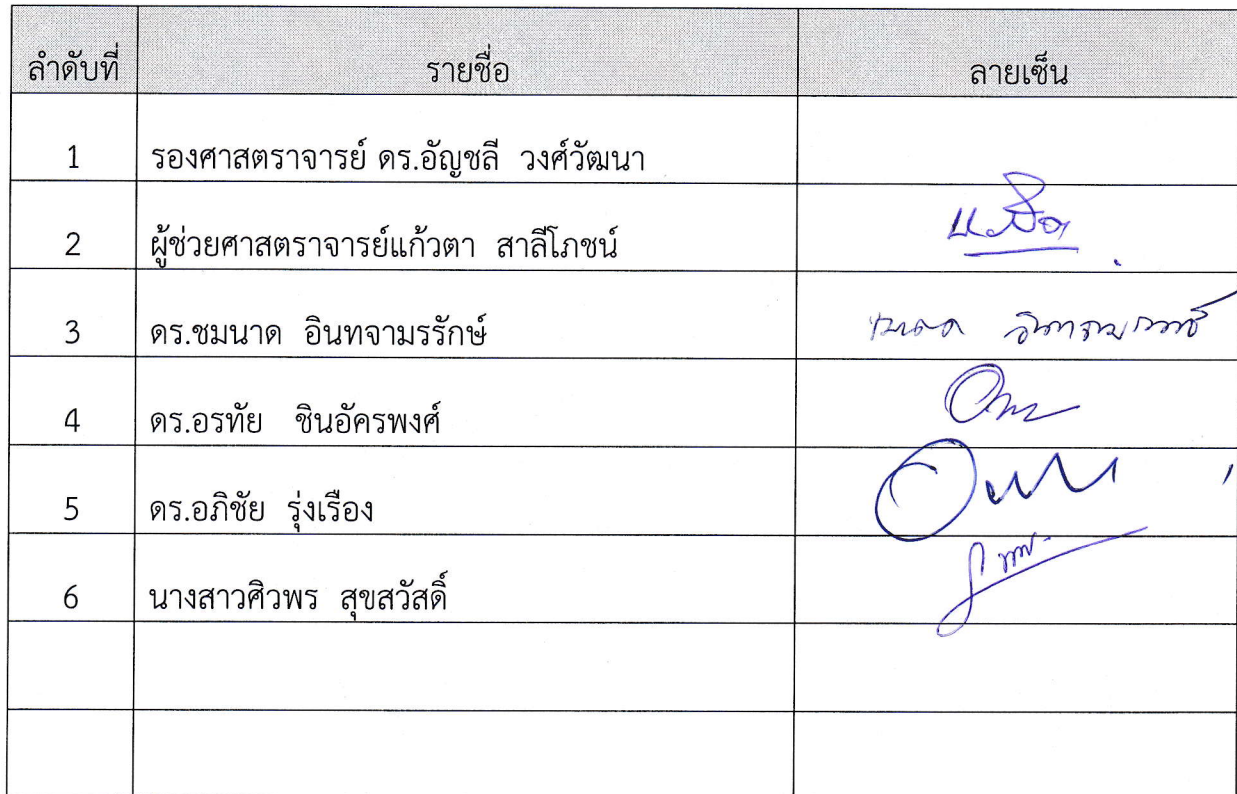 ลำดับที่ รายชื่อ ลายเซ็น
1 รองศาสตราจารย์ ดร.อัญชลี วงศ์วัฒนา
2 ผู้ช่วยศาสตราจารย์แก้วตา สาลีโภชน์
3 ดร.ชมนาด อินทจามรรักษ์
4 ดร.อรทัย ชินอัครพงศ์
5 ดร.อภิชัย รุ่งเรือง
6 นางสาวศิวพร สุขสวัสดิ์